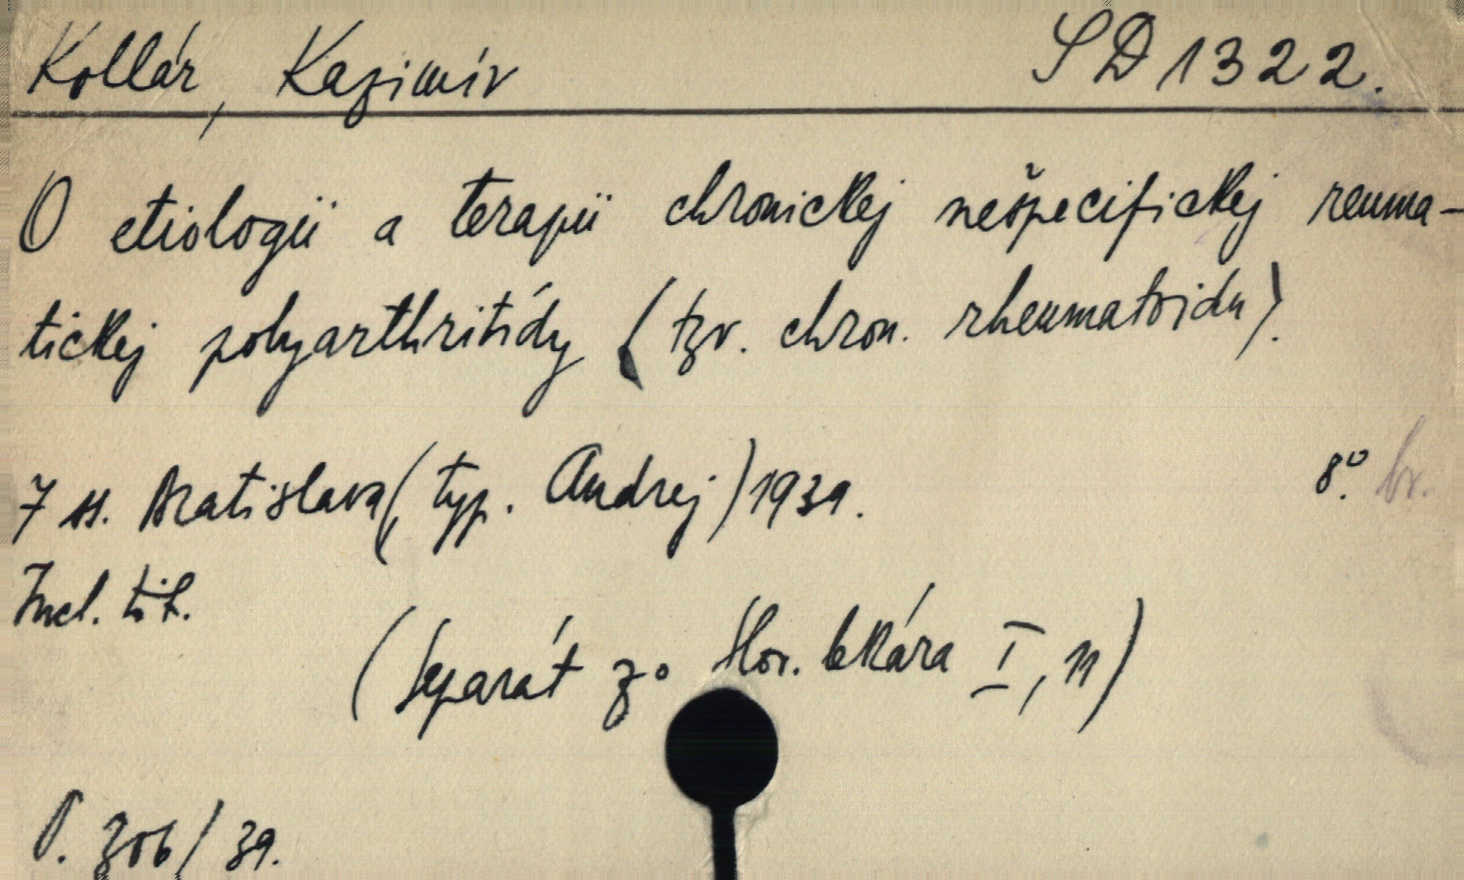 Kollár, Kazimír SD 1322.
O etiologii a terapii chronickej nešpecifickej reuma-
tickej polyarthritídy (tzv. chron. rheumatoidu).
7 ss. Bratislava (typ. Andrej) 1939. 8º. br.
Incl. tit.
(Separát zo Slov. lekára I, 11)
D. 306/39.